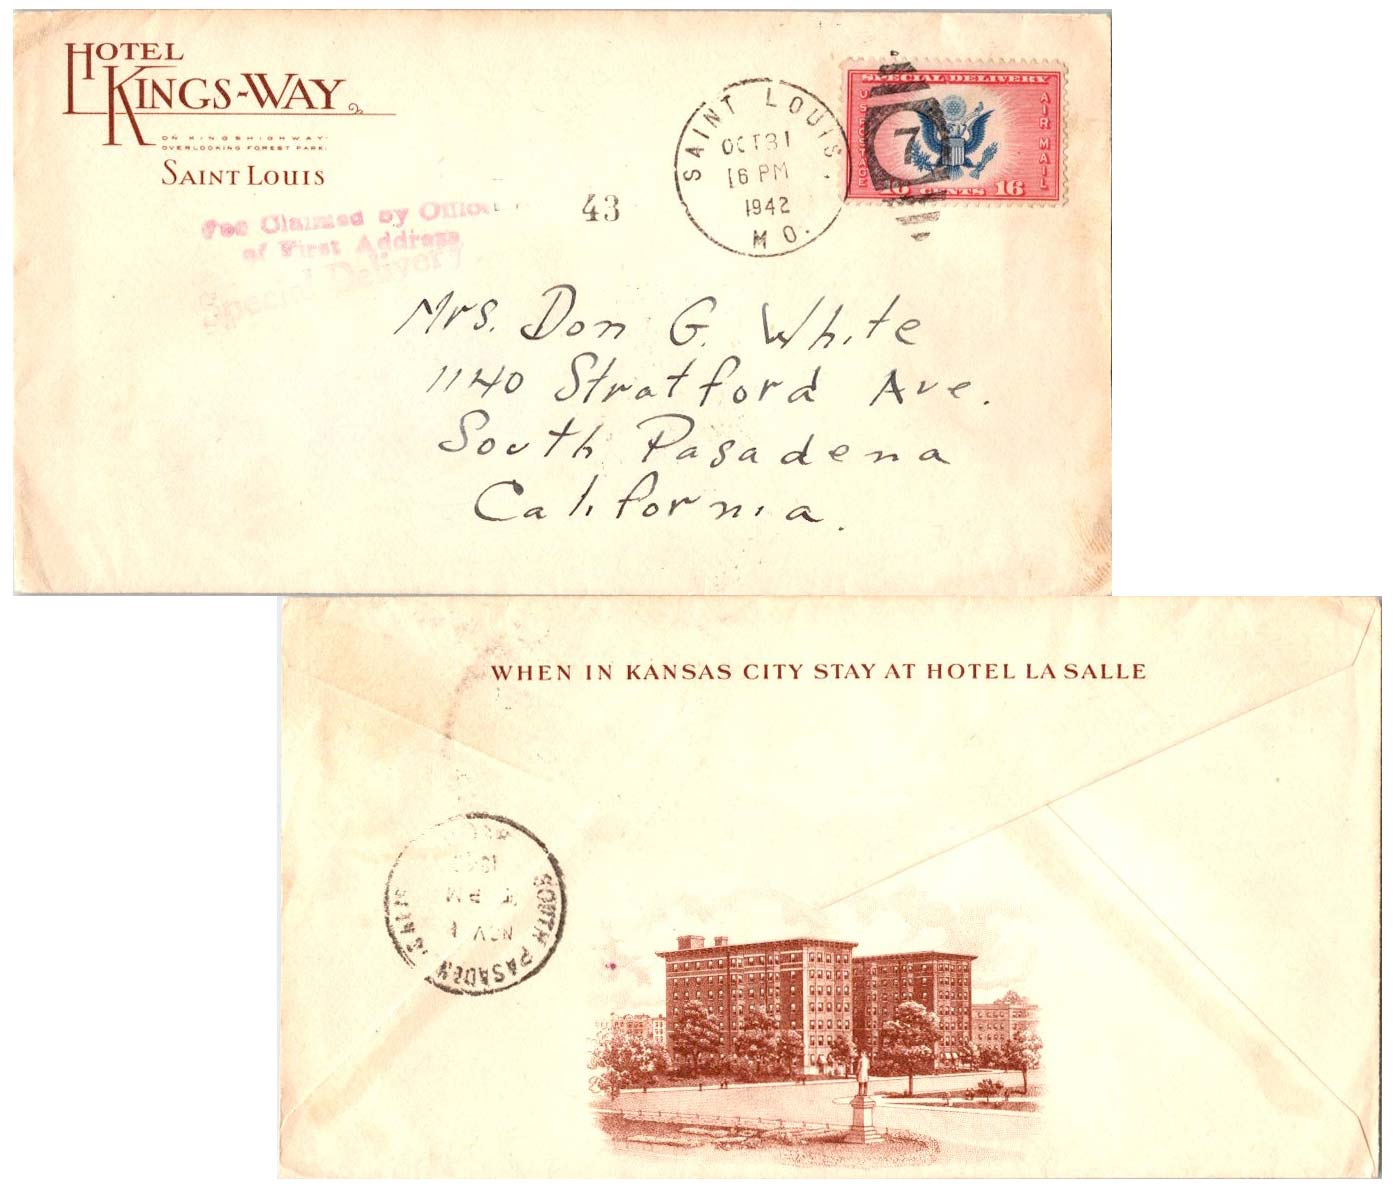 HOTEL
KINGS-WAY
ON KINGSHIGHWAY
OVERLOOKING FOREST PARK
SAINT LOUIS
Fee Claimed by Office
of First Address
Special Delivery
43
SAINT LOUIS,
OCT 31
6 PM
1942
MO.
SPECIAL DELIVERY
U S POSTAGE
AIR MAIL
7
16 CENTS 16
Mrs. Don G. White
1140 Stratford Ave.
South Pasadena
California.
WHEN IN KANSAS CITY STAY AT HOTEL LA SALLE
SOUTH PASADEN
NOV 1
PM